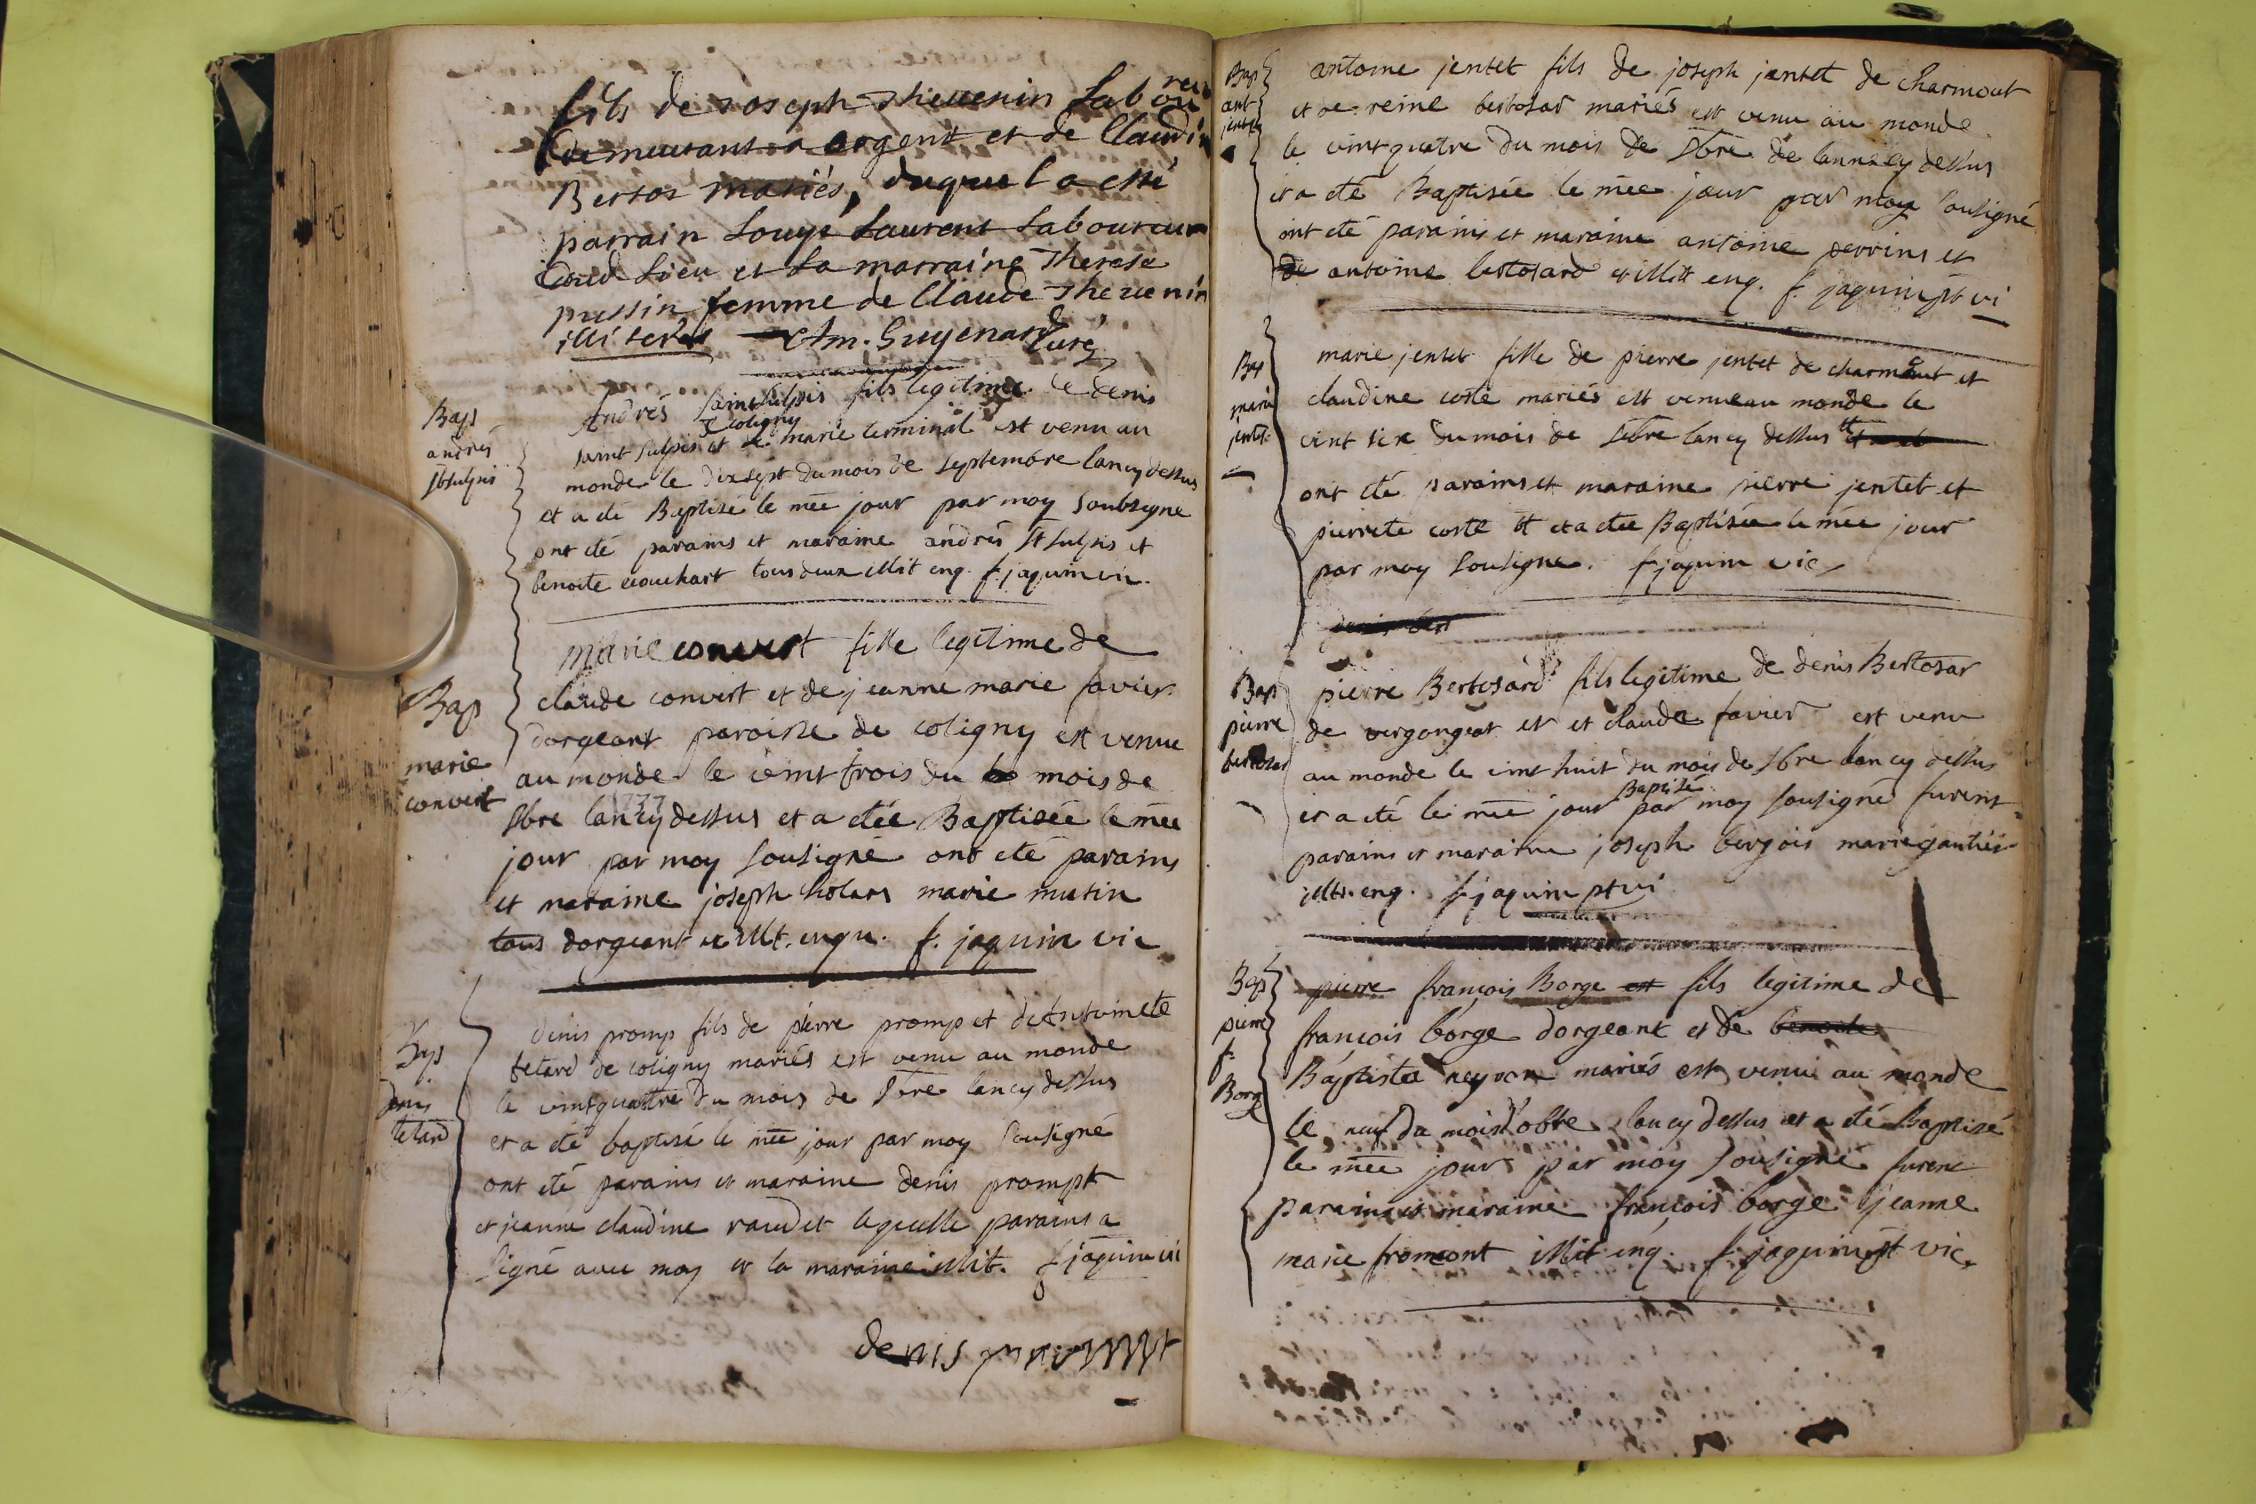 fils de Joseph Thevenin Laboureur
demeurant a orgent et de Claudin
Bertos mariés, duquel a esté
parrain Louys Laurent Laboureur
dud Lieu et La marraine Therese
pussin femme de Claude Thevenin
illiterés Am. Guyenard Curé
Bap
andrés
St sulpis
Andrés saint sulpis fils legitime de denis
de coligny
saint sulpis et de marie terminal est venu au
monde le dixsept du mois de septembre lancy dessus
et a été Baptisé le mée jour par moy soubsigne
ont été parains et maraine andrés St sulpis et
benoite tous deux illit enq. f. jaquin vic.
Bap
marie
convert
Marie convert fille legitime de
claude convert et de jeanne marie favier
dorgeant paroisse de coligny est venue
au monde le vint trois du mois de
1737
7bre lancy dessus et a étée Baptisée le mée
jour par moy sousigné ont été parains
et maraine joseph marie mutin
tous dorgeant et illit. enqu. f. jaquin vic
Bap
denis
tetard
denis promp fils de pierre promp et de Antoinete
tetard de coligny mariés est venu au monde
le vintquattre du mois de 7bre lancy dessus
et a été baptisé le mée jour par moy sousigné
ont été parains et maraine denis prompt
et jeanne claudine vaudet lequelle parains a
signé avec moy et la maraine illit. f jaquin vi
denis prompt
Bap
ant
jentet
antoine jentet fils de joseph jentet de charmout
et de reine bertosar mariés est venu au monde
le vintquatre du mois de 7bre de lannée cy dessus
et a été Baptisée le mée jour par moy sousigné
ont été parains et maraine antoine perrins et
de antoine bertosard et illitt enq. f. jaquin pt vi
Bap
marie
jentet
marie jentet fille de pierre jentet de charmout et
claudine coste mariés est venue au monde le
vint six du mois de 7bre lancy dessus
ont été parains et maraine pierre jentet et
pierrete coste et a étée Baptisée le mée jour
par moy sousigne. f jaquin vic
denis bert
Bap
pierre
bertosar
pierre Bertosard fils legitime de denis Bertosar
de vergongeat et et claude favier est venu
au monde le vint huit du mois de 7bre lancy dessus
Baptisé
et a été le mée jour par moy sousigné furent
parains et maraine joseph berjois marie gautier
illit. enq. f. jaquin pt vi
Bap
pierre
f.
Borge
pierre françois Borge est fils legitime de
françois borge dorgeant et de benoite
Baptista neyron mariés est venu au monde
le neuf du mois d'obre lancy dessus et a été Baptisé
le mée jour par moy sousigné furent
parains et maraine françois borge jeanne
marie fromont illit enq. f. jaquin pt vic.